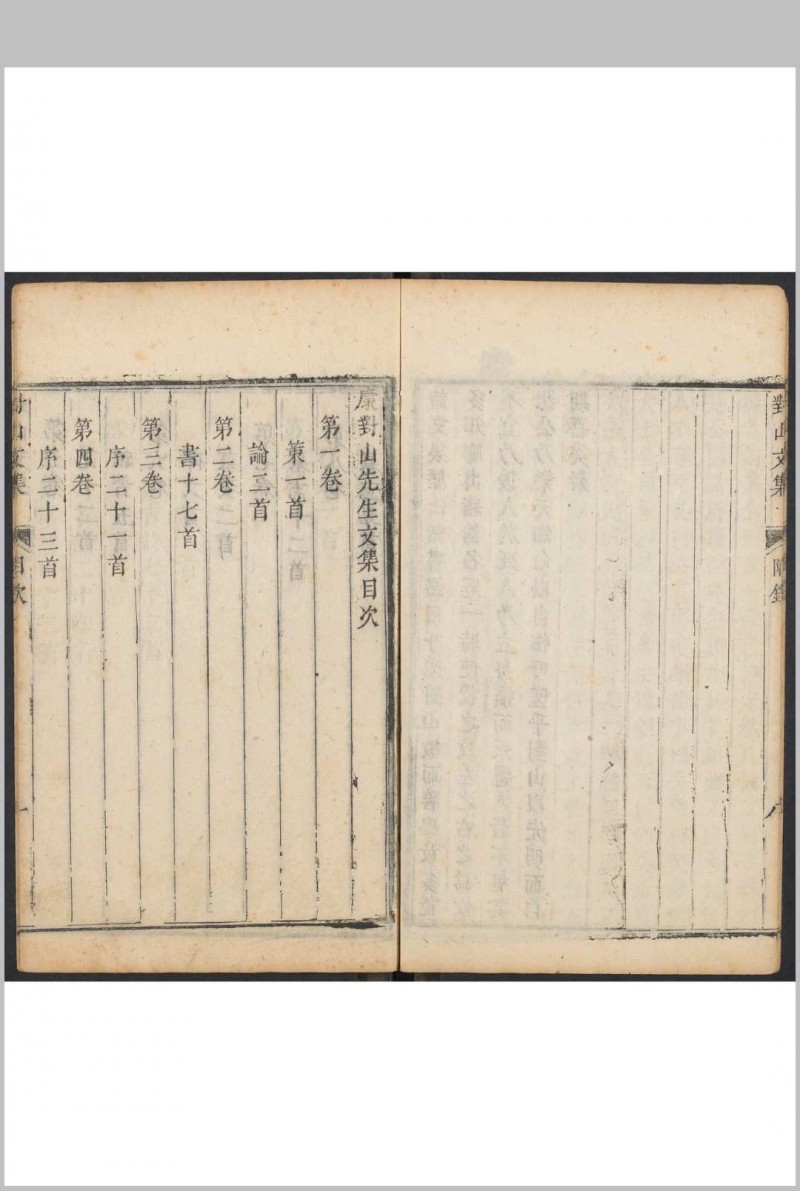 對山文集
附錄
八
康對山先生文集目次
第一卷
策一首
論三首
第二卷
書十七首
第三卷
序二十一首
第四卷
序二十三首
對山文集
目次
一